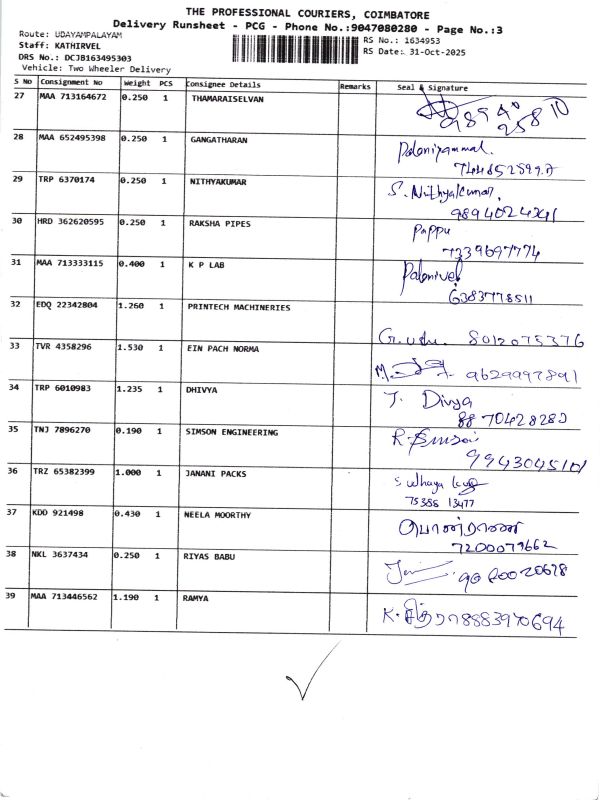 THE PROFESSIONAL COURIERS, COIMBATORE
Delivery Runsheet - PCG - Phone No.:9047080280 - Page No.:3
Route: UDAYAMPALAYAM
RS No.: 1634953
Staff: KATHIRVEL
RS Date: 31-Oct-2025
DRS No.: DCJB163495303
Vehicle: Two Wheeler Delivery
S No Consignment No Weight PCS Consignee Details Remarks Seal & Signature
27 MAA 713164672 0.250 1 THAMARAISELVAN
98940
25810
28 MAA 652495398 0.250 1 GANGATHARAN Palaniyammal.
29 TRP 6370174 0.250 1 NITHYAKUMAR S. Nithyakumar,
9894024341
30 HRD 362620595 0.250 1 RAKSHA PIPES Pappu
7339697774
31 MAA 713333115 0.400 1 K P LAB Palanivel
6383778511
32 EDQ 22342804 1.260 1 PRINTECH MACHINERIES
G. usha. 8012075376
33 TVR 4358296 1.530 1 EIN PACH NORMA
M. 9629997891
34 TRP 6010983 1.235 1 DHIVYA J. Divya
8870428282
35 TNJ 7896270 0.190 1 SIMSON ENGINEERING
9943045101
36 TRZ 65382399 1.000 1 JANANI PACKS
75388 13477
37 KDD 921498 0.430 1 NEELA MOORTHY
7200079662
38 NKL 3637434 0.250 1 RIYAS BABU
39 MAA 713446562 1.190 1 RAMYA K. சித்ரா 8883970694